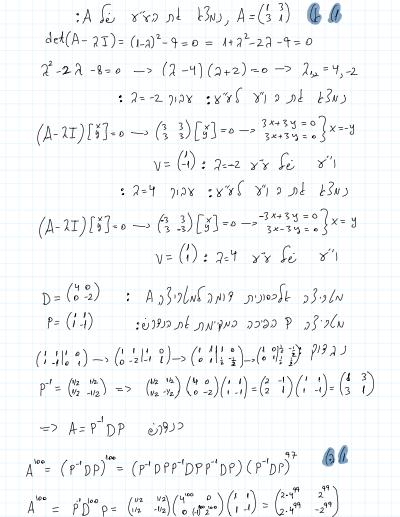 נמצא את הע״ע של A: , A = (1 3; 3 1)
det(A-λI) = (1-λ)² - 9 = 0 = 1+λ²-2λ-9 = 0
λ²-2λ-8=0 → (λ-4)(λ+2)=0 → λ₁,₂ = 4,-2
נמצא את הו״ע לע״ע: עבור λ=-2 :
(A-λI)[x; y]=0 → (3 3; 3 3)[x; y]=0 → 3x+3y=0, 3x+3y=0 } x=-y
ו״ע של ע״ע λ=-2 : V = (1; -1)
עבור λ=4 :
(A-λI)[x; y]=0 → (-3 3; 3 -3)[x; y]=0 → -3x+3y=0, 3x-3y=0 } x=y
ו״ע של ע״ע λ=4 : V = (1; 1)
מטריצה אלכסונית דומה למטריצה A : D = (4 0; 0 -2)
מטריצה P הפיכה המקיימת את הנדרש: P = (1 1; 1 -1)
(1 1|1 0; 1 -1|0 1) → (1 1|1 0; 0 -2|-1 1) → (1 1|1 0; 0 1|½ -½) → (1 0|½ ½; 0 1|½ -½)
P⁻¹ = (1/2 1/2; 1/2 -1/2) => (1/2 1/2; 1/2 -1/2)(4 0; 0 -2)(1 1; 1 -1) = (2 -1; 2 1)(1 1; 1 -1) = (1 3; 3 1)
=> A = P⁻¹DP כנדרש
A¹⁰⁰ = (P⁻¹DP)¹⁰⁰ = (P⁻¹DPP⁻¹DPP⁻¹DP)(P⁻¹DP)⁹⁷
A¹⁰⁰ = P⁻¹D¹⁰⁰P = (1/2 1/2; 1/2 -1/2)(4¹⁰⁰ 0; 0 2¹⁰⁰)(1 1; 1 -1) = (2·4⁹⁹ 2⁹⁹; 2·4⁹⁹ -2⁹⁹)